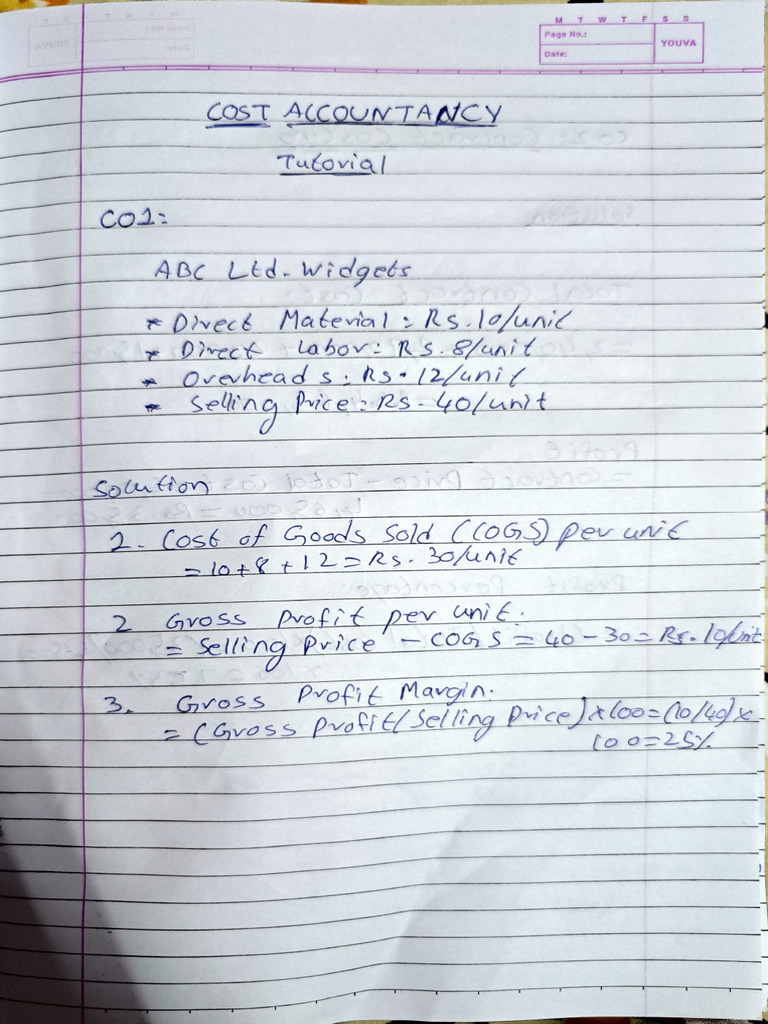 M T W T F S S
Page No.:
Date:
YOUVA
COST ACCOUNTANCY
Tutorial
CO1:
ABC Ltd. Widgets
* Direct Material: Rs.10/unit
* Direct Labor: Rs. 8/unit
* Overheads: Rs. 12/unit
* Selling Price: Rs. 40/unit
Solution
1. Cost of Goods Sold (COGS) per unit
= 10 + 8 + 12 = Rs. 30/unit
2 Gross Profit per unit.
= Selling Price - COGS = 40 - 30 = Rs. 10/unit
3. Gross Profit Margin.
= (Gross Profit/Selling Price) x 100 = (10/40) x
100 = 25%